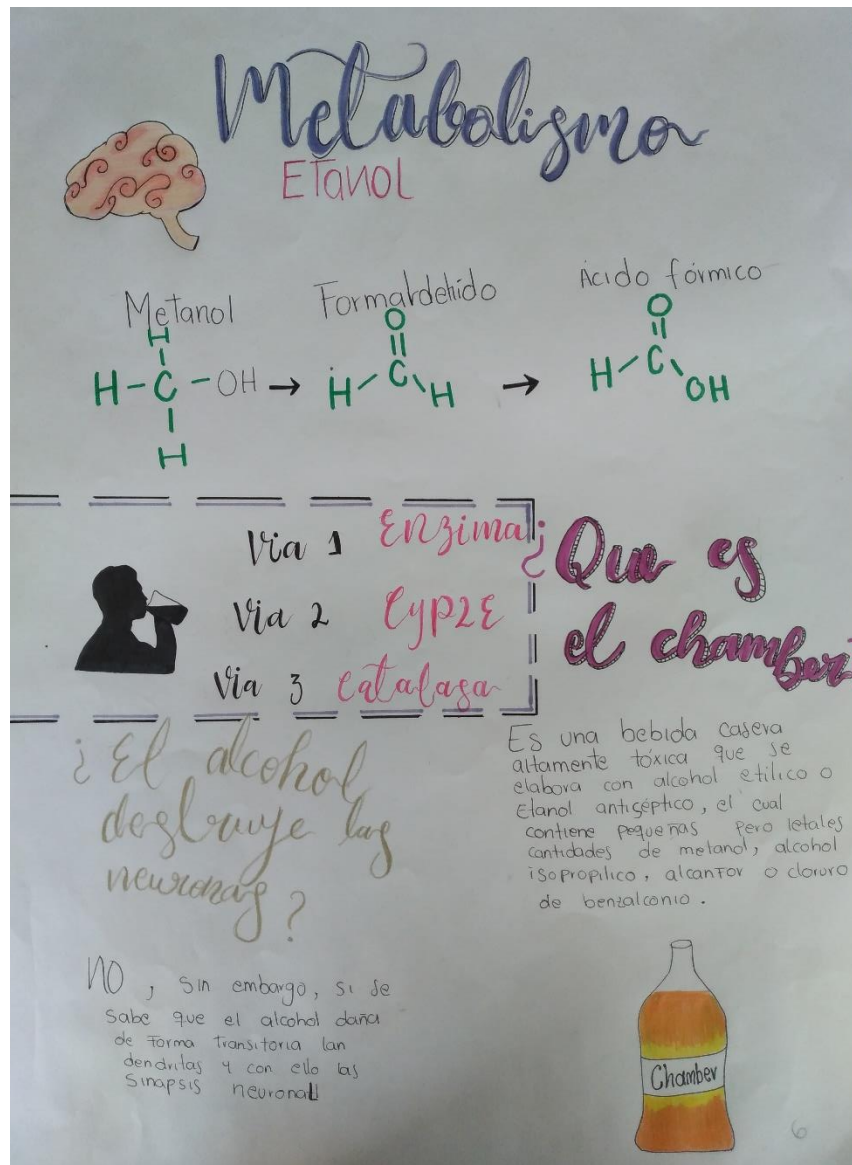 Metabolismo
ETANOL
Metanol
Formaldehido
Ácido fórmico
H
H-C-OH → 
H
O
H C H →
O
H C OH
Via 1 Enzima
Via 2 Cyp2E
Via 3 Catalasa
¿Que es
el chamber
Es una bebida casera
altamente tóxica que se
elabora con alcohol etilico o
Etanol antiséptico, el cual
contiene pequeñas pero letales
cantidades de metanol, alcohol
isopropilico, alcanfor o cloruro
de benzalconio.
¿El alcohol
destruye las
neuronas?
NO, sin embargo, si se
sabe que el alcohol daña
de forma transitoria lan
dendritas y con ello las
sinapsis neuronal
Chamber
6